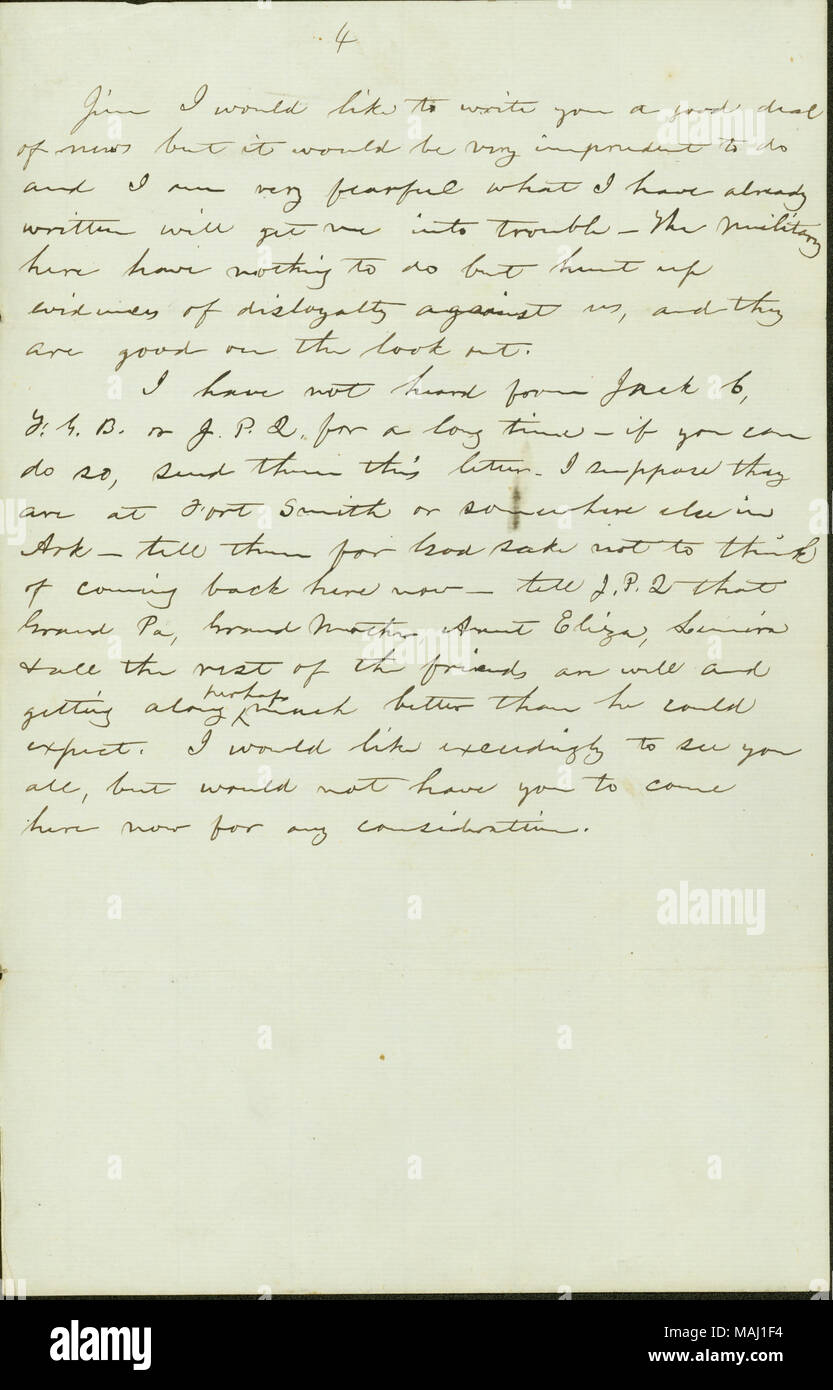 4
Jim I would like to write you a good deal
of news but it would be very imprudent to do
and I am very fearful what I have already
written will get me into trouble — The Military
here have nothing to do but hunt up
evidences of disloyalty against us, and they
are good on the look out.
I have not heard from Jack
B. or J. P. Q. for a long time — if you can
do so, send them this letter. I suppose they
are at Fort Smith or somewhere else in
Ark — tell them for God sake not to think
of coming back here now — tell J. P. Q that
Grand Pa, Grand Mother Aunt Eliza,
& all the rest of the friends are well and
getting along perhaps much better than he could
expect. I would like exceedingly to see you
all, but would not have you to come
here now for any consideration.
alamy
Image ID: MAJ1F4
www.alamy.com